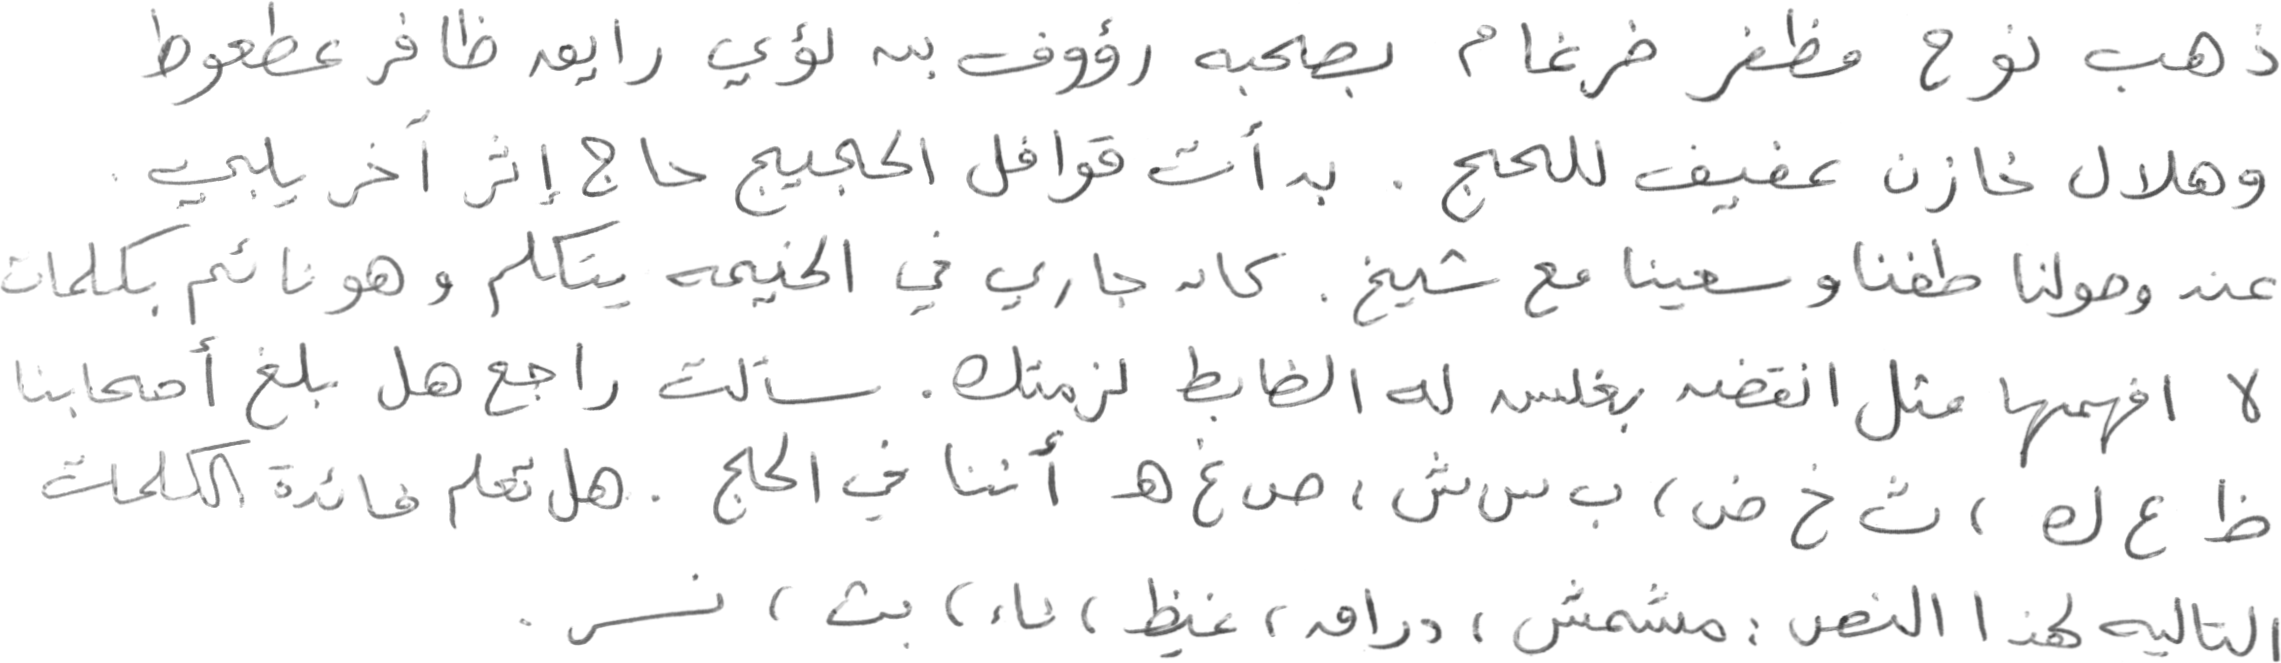 ذهب نوح مظفر ضرغام بصحبه رؤوف بن لؤي رايق ظافر عطعوط
وهلال خازن عفيف للحج . بدأت قوافل الحجيج حاج إثر آخر يلبي .
عند وصولنا طفنا وسعينا مع شيخ . كان جاري في الخيمه يتكلم وهو نائم بكلمات
لا افهمها مثل انقضى بغلس له الظابط لزمتك . سألت راجع هل بلغ أصحابنا
ظ ع ك ، ث خ ض ، ب س ش ، ص غ هـ أننا في الحج . هل تعلم فائدة الكلمات
التاليه لهذا النص : مشمش ، دراق ، غيظ ، ناء ، بث ، نسر .